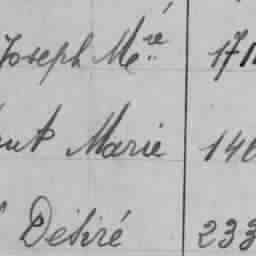 Joseph M.re 171
Marie 140
Désiré 233